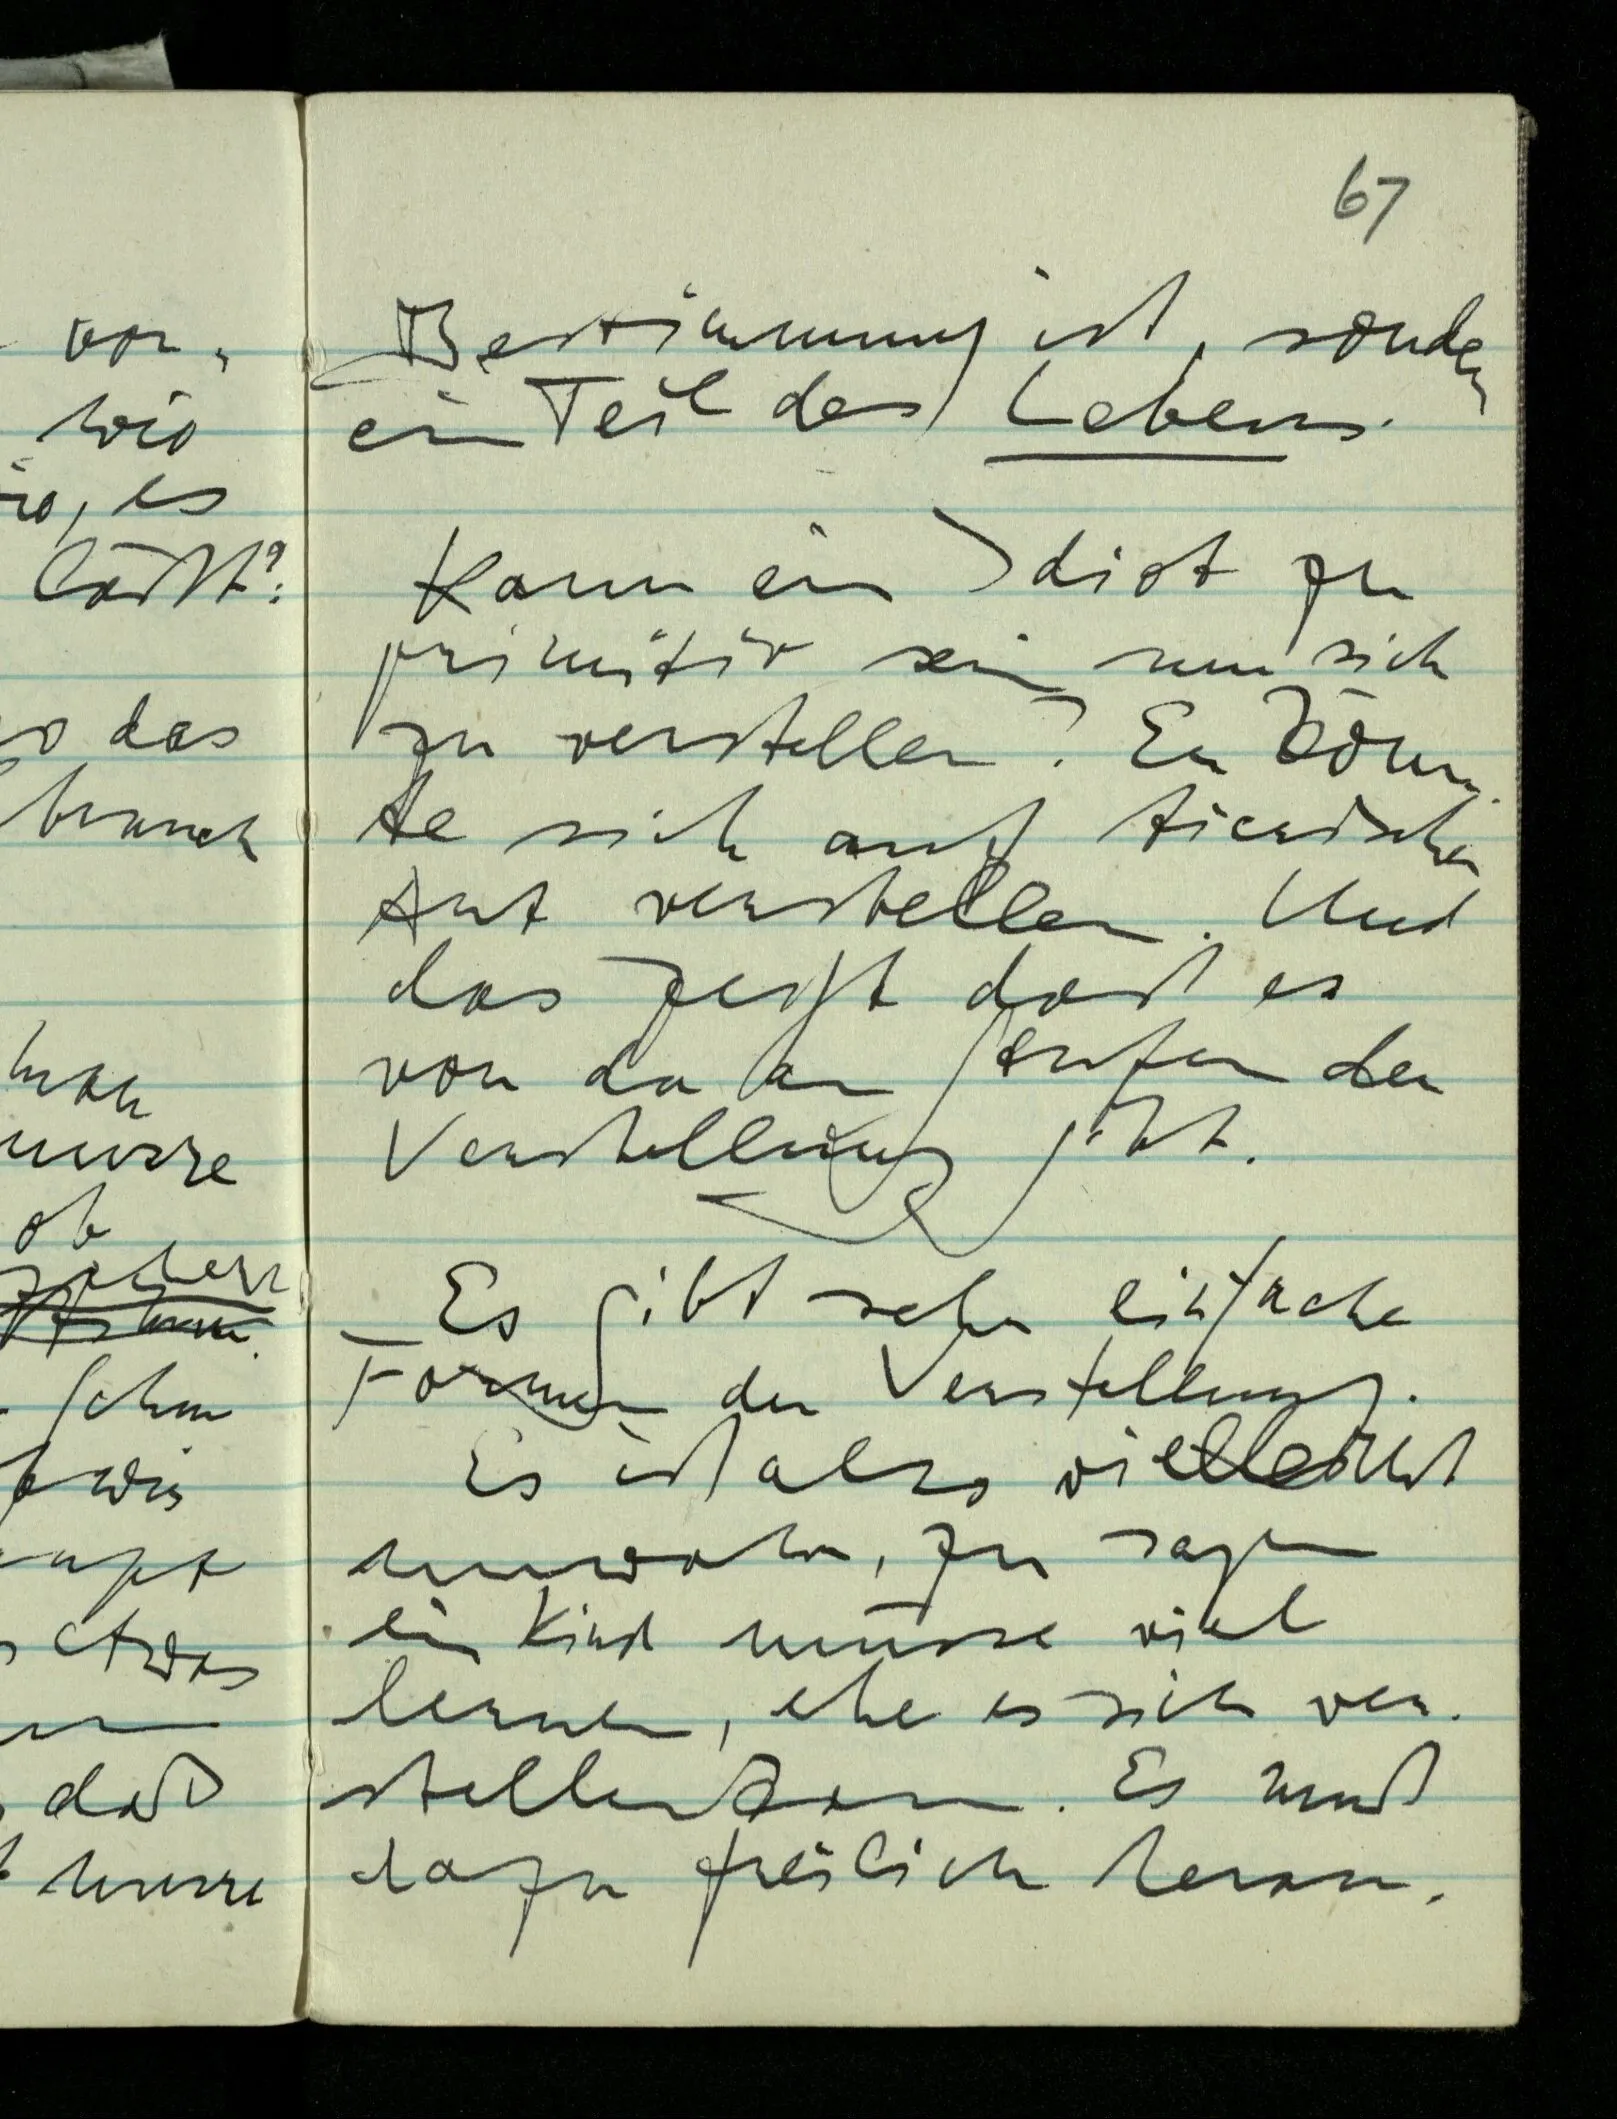 67
von,
wie
es
läßt?
das
brauch
man
müsse
ob
schon
wir
etwas
daß
müsse
Bestimmung ist, sondern
ein Teil des Lebens.
Kann ein Idiot zu
primitiv sein um sich
zu verstellen? Er könn-
te sich auf tierische
Art verstellen. Und
das zeigt daß es
von da an Stufen der
Verstellung gibt.
Es gibt sehr einfache
Formen der Verstellung.
Es ist also vielleicht
unwahr, zu sagen
ein Kind müsse viel
lernen, ehe es sich ver-
stellen kann. Es muß
dazu freilich